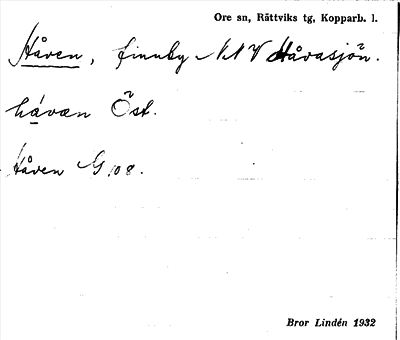 Ore sn, Rättviks tg, Kopparb. l.
Håven, finnby NNV Håvasjön.
hávæn Öst.
Håven G 108.
Bror Lindén 1932